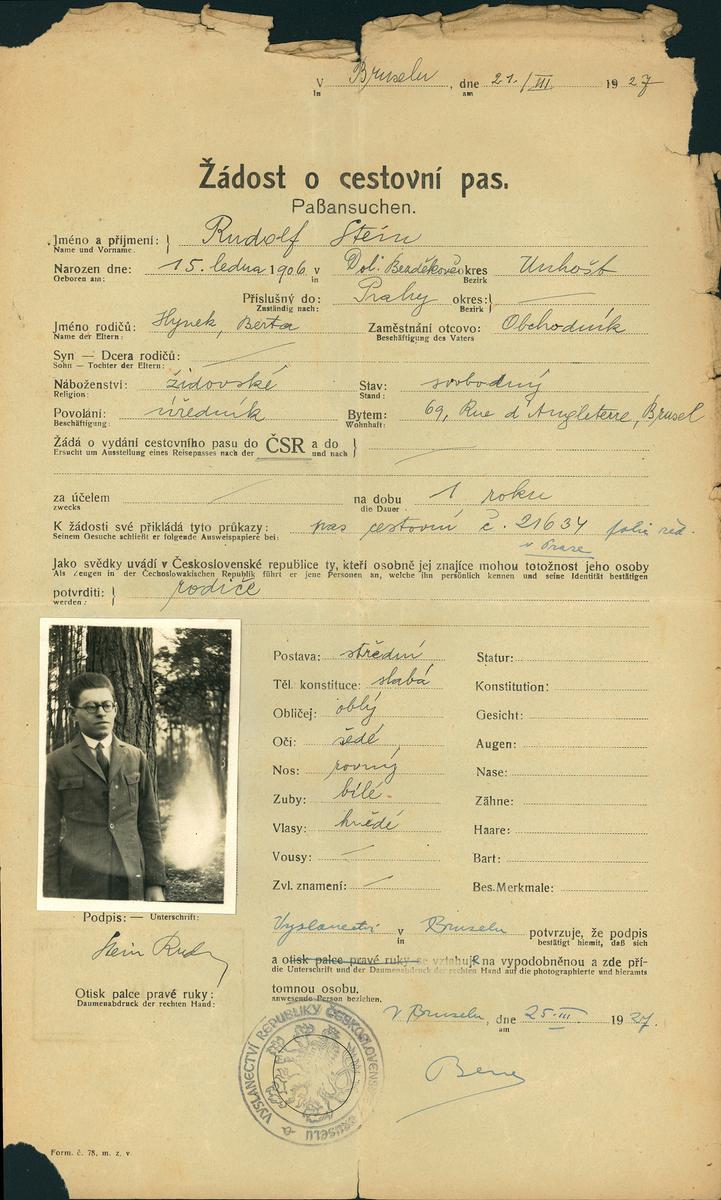 V Bruselu, dne 21./III. 1927
In am
Žádost o cestovní pas.
Paßansuchen.
Jméno a příjmení: Rudolf Stein
Name und Vorname:
Narozen dne: 15. ledna 1906 v Dol. Bezděkově okres Unhošť
Geboren am: in Bezirk
Příslušný do: Prahy okres:
Zuständig nach: Bezirk
Jméno rodičů: Hynek, Berta Zaměstnání otcovo: Obchodník
Name der Eltern: Beschäftigung des Vaters
Syn — Dcera rodičů:
Sohn — Tochter der Eltern:
Náboženství: židovské Stav: svobodný
Religion: Stand:
Povolání: úředník Bytem: 69, Rue d'Angleterre, Brusel
Beschäftigung: Wohnhaft:
Žádá o vydání cestovního pasu do ČSR a do
Ersucht um Ausstellung eines Reisepasses nach der und nach
za účelem na dobu 1 roku
zwecks die Dauer
K žádosti své přikládá tyto průkazy: pas cestovní č. 21634
Seinem Gesuche schließt er folgende Ausweispapiere bei: v Praze
Jako svědky uvádí v Československé republice ty, kteří osobně jej znajíce mohou totožnost jeho osoby
Als Zeugen in der Čechoslowakischen Republik führt er jene Personen an, welche ihn persönlich kennen und seine Identität bestätigen
potvrditi: rodiče
werden:
Postava: střední Statur:
Těl. konstituce: slabá Konstitution:
Obličej: oblý Gesicht:
Oči: šedé Augen:
Nos: rovný Nase:
Zuby: bílé Zähne:
Vlasy: hnědé Haare:
Vousy: Bart:
Zvl. znamení: Bes. Merkmale:
Podpis: — Unterschrift:
Stein Rud
Otisk palce pravé ruky:
Daumenabdruck der rechten Hand:
Vyslanectví v Bruselu potvrzuje, že podpis
in bestätigt hiemit, daß sich
a otisk palce pravé ruky se vztahuje na vypodobněnou a zde pří-
die Unterschrift und der Daumenabdruck der rechten Hand auf die photographierte und hieramts
tomnou osobu.
anwesende Person beziehen.
V Bruselu, dne 25. III. 1927.
am
VYSLANECTVÍ REPUBLIKY ČESKOSLOVENSKÉ V BRUSELU
Form. č. 78, m. z. v.